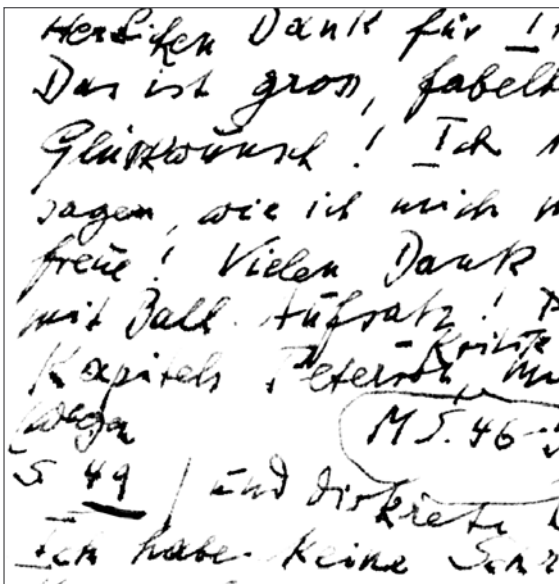 Herzlichen Dank für I
Das ist gross, fabel
Glückwunsch! Ich
sagen, wie ich mich
freue! Vielen Dank
mit Ball-Aufsatz!
Kritik
Kapitels Peterson,
wegen
M S. 46-
S. 49 / und diskrete
Ich habe keine